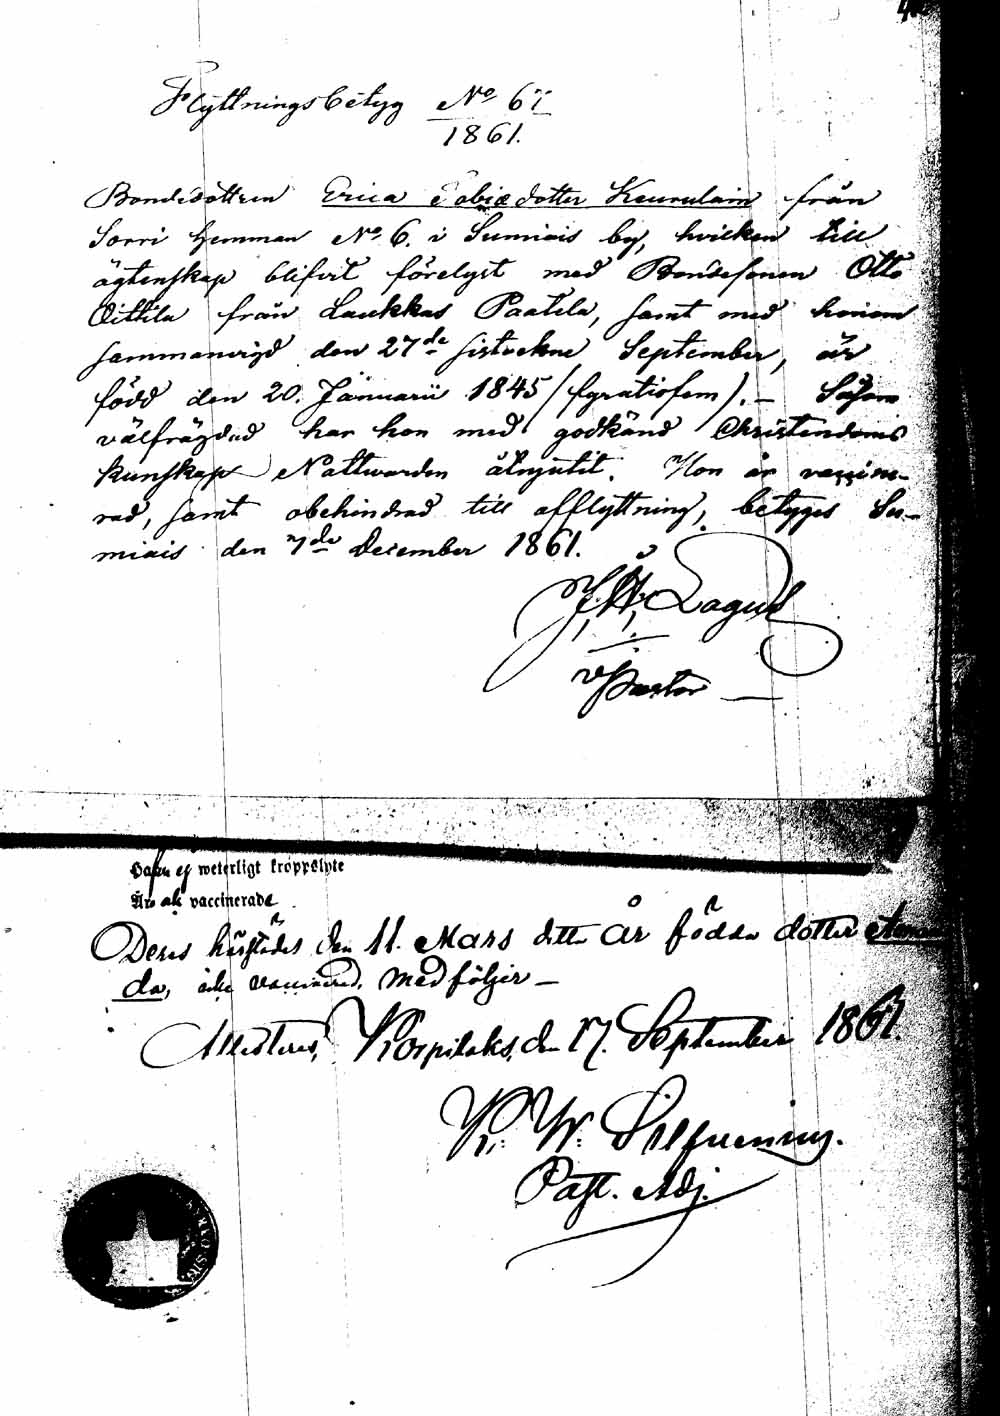 Flyttningsbetyg No 61
1861.
Bondedottren Erica Tobiædotter Keurulain från
Sorri hemman No 6. i Sumiais by, hvilken till
ägtenskap blifvit förelyst med Bondesonen Otto
Oittila från Laukkas Paatela, samt med honom
sammanvigd den 27de sistvekne September, är
född den 20. Januarii 1845 (fyratiofem). – Såsom
välfrägdad har hon med godkänd Christendoms
kunskap Nattwarden åtnjutit. Hon är vaccine-
rad, samt obehindrad till afflyttning, betyges Su-
miais den 7de December 1861.
J. W. Lagus
v Pastor
Hafva ej weterligt kroppslyte
Äro ak vaccinerade
Deras härstädes den 11. Mars detta år födda dotter Aman
da, icke vaccinerad, medföljer –
Attesteras, Korpilaks, den 17. September 1861.
K. W. Silfvenius.
Past. Adj.